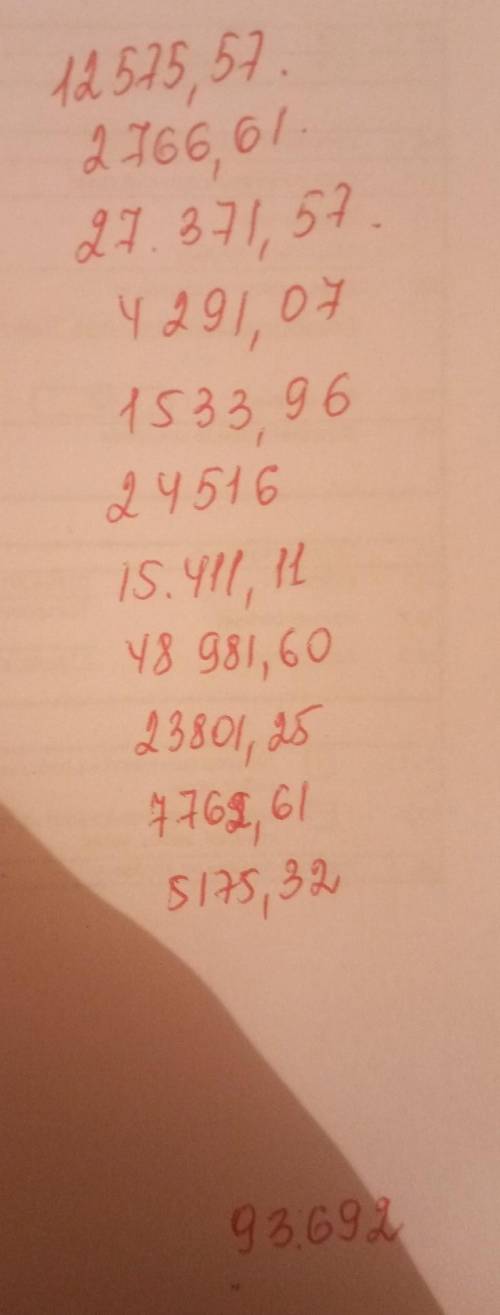 12575,57.
2766,61.
27.371,57.
4291,07
1533,96
24516
15.411,11
48 981,60
23801,25
7762,61
5175,32
93.692